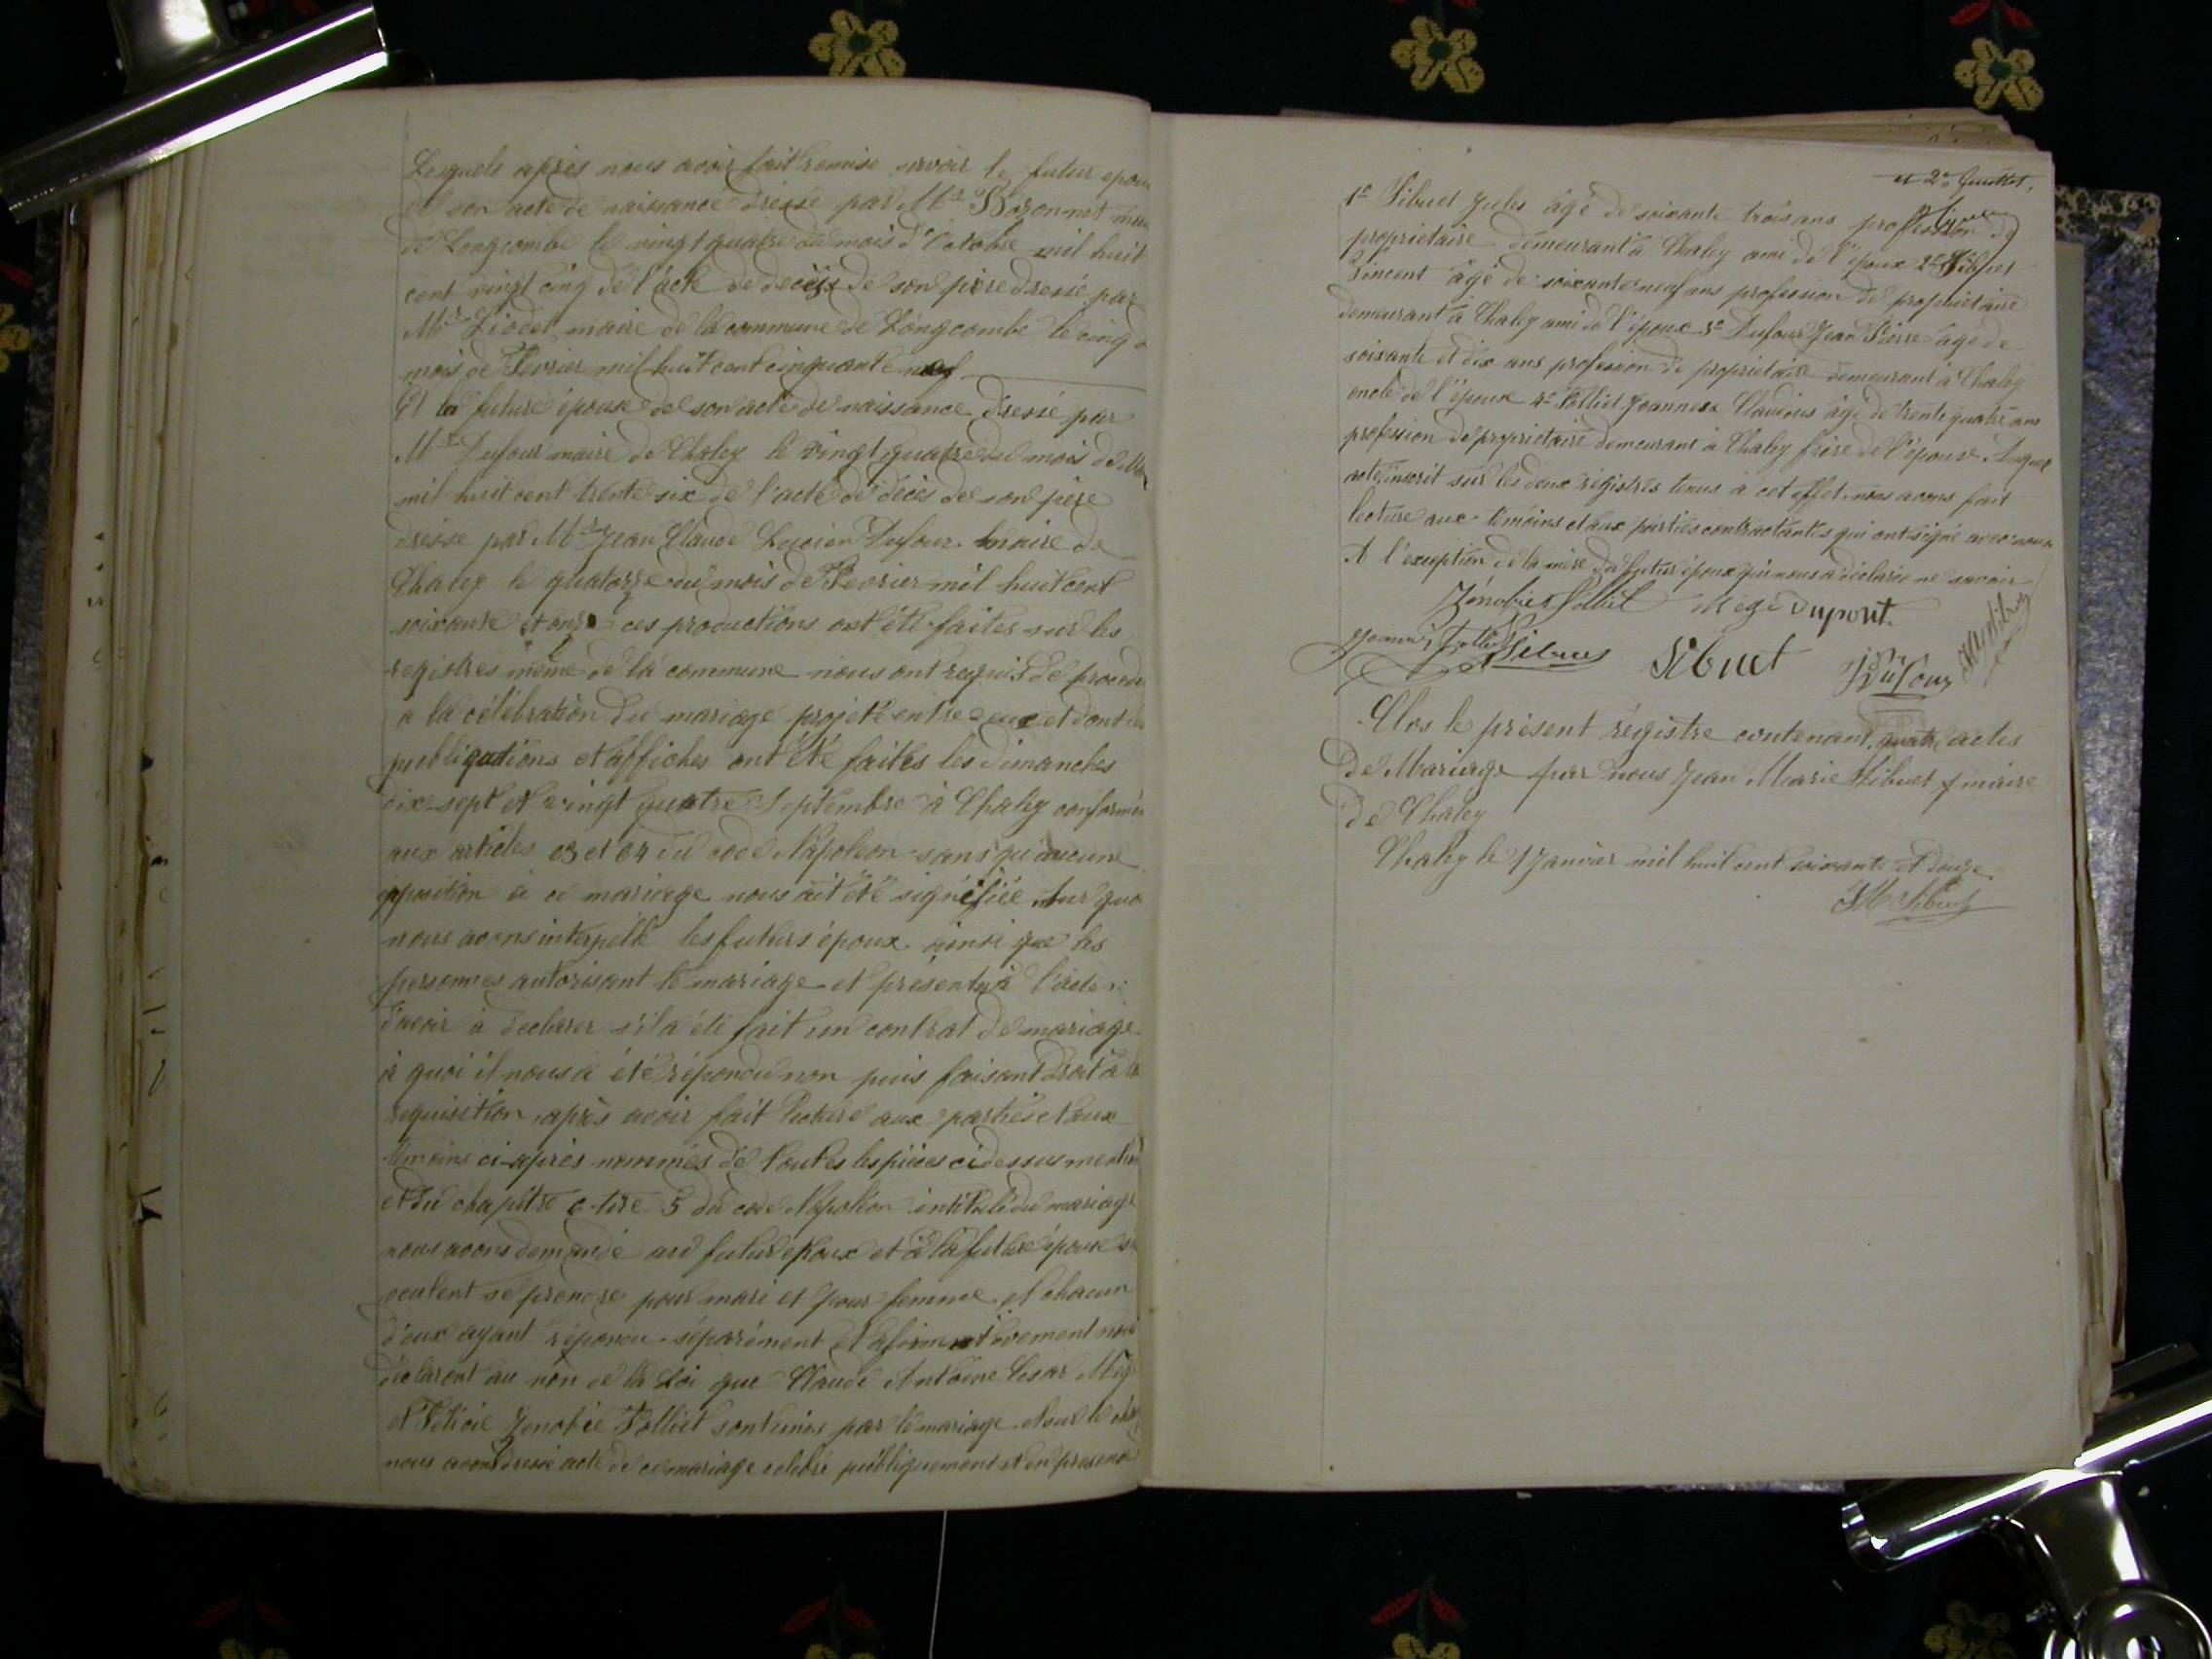 Lesquels après nous avoir fait remise savoir le futur epoux
de son acte de naissance dressé par Mr Bozonnet
de Longcombe le vingt quatre du mois d'Octobre mil huit
cent vingt cinq de l'acte de decès de son père dressé par
Mr Liodet maire de la commune de Longcombe le cinq
mois de Fevrier mil huit cent cinquante neuf
Et la future épouse de son acte de naissance dressé par
Mr Dufour maire de Chaley le vingt quatre du mois de
mil huit cent trente six de l'acte de decès de son père
dresse par Mr Jean Claude Lucien Dufour maire de
Chaley le quatorze du mois de Fevrier mil huit cent
soixante et onze ces productions ont été faites sur les
registres même de la commune nous ont requis de proceder
a la célébration du mariage projeté entre eux et dont les
publications et affiches ont été faites les dimanches
dix sept et vingt quatre Septembre à Chaley conformé
aux articles 63 et 64 du code Napoleon sans qu'aucune
opposition à ce mariage nous ait été signifiée sur quoi
nous avons interpellé les futurs époux ainsi que les
personnes autorisant le mariage et présentes à l'acte
d'avoir à declarer s'il a été fait un contrat de mariage
à quoi il nous a été répondu non puis faisant droit à la
requisition après avoir fait lecture aux parties et aux
témoins ci-après nommés de toutes les pièces ci dessus
et du chapitre 6 titre 5 du code Napoléon intitulé du mariage
nous avons demandé au futur époux et à la future épouse s'ils
veulent se prendre pour mari et pour femme et chacun
d'eux ayant répondu séparément et afirmativement nous
déclaront au nom de la Loi que Claude Antoine Cesar Mége
et Félicie Zenobie Folliet sont unis par le mariage et sur le
nous avons dressé acte de ce mariage celebré publiquement et en presence
1e Sibuet Jules âgé de soixante trois ans profession de
propriétaire demeurant à Chaley ami de l'époux 2e Sibuet
Vincent âgé de soixante neuf ans profession de propriétaire
demeurant à Chaley ami de l'époux 3e Dufour Jean Pierre âgé de
soixante et dix ans profession de propriétaire demeurant à Chaley
oncle de l'époux 4e Folliet Joannes Claudius âgé de trente quatre ans
profession de propriétaire demeurant à Chaley frère de l'épouse. Auquel
acte inscrit sur les deux régistres tenus à cet effet nous avons fait
lecture aux témoins et aux parties contractantes qui ont signé avec nous
A l'exception de la mère du futur époux qui nous a déclarée ne savoir
Zénobie Folliet Mége Dupont.
Joannes Folliet Sibuet Sibuet JDufour JM Sibuet
Clos le présent régistre contenant quatre actes
de Mariage par nous Jean Marie Sibuet maire
de Chaley
Chaley le 1 Janvier mil huit cent soixante et douze
JM Sibuet